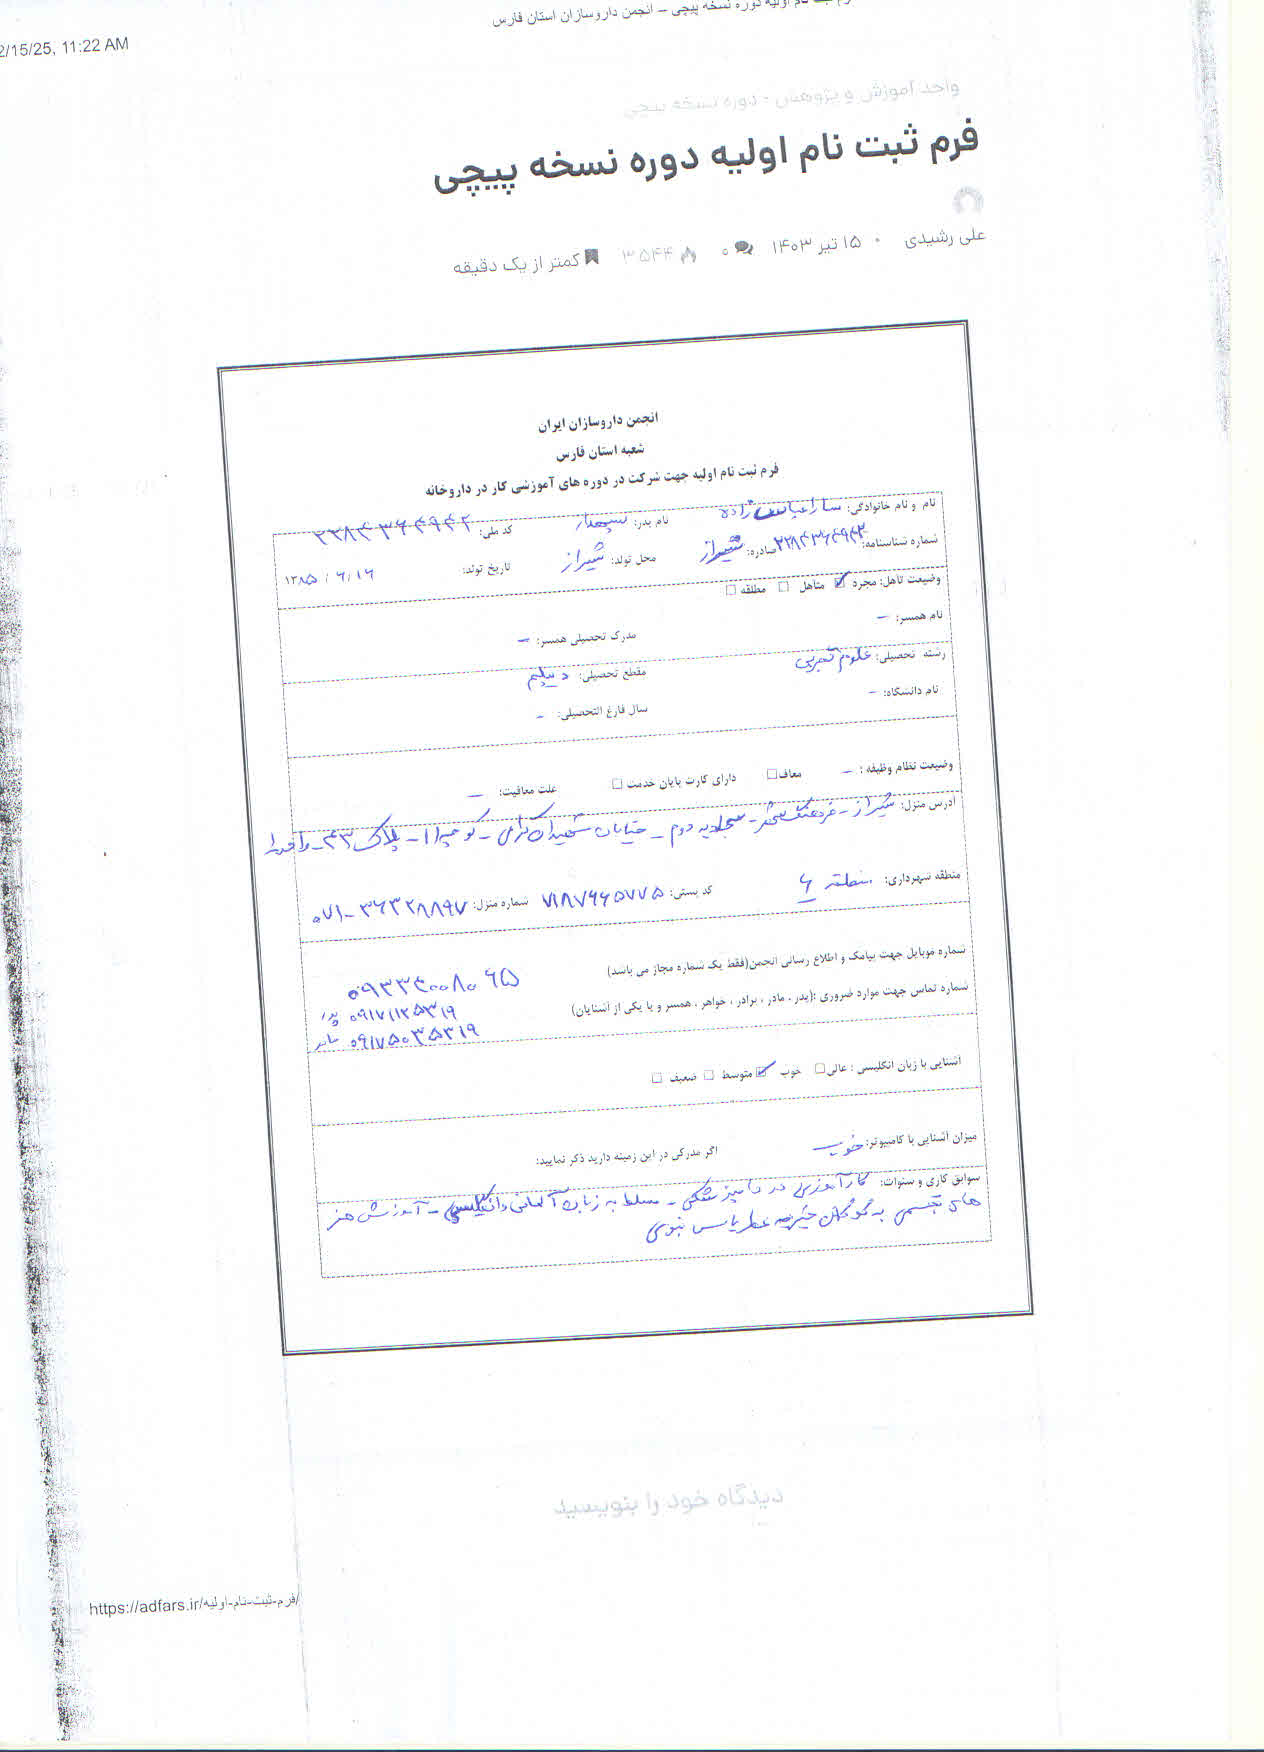 فرم ثبت نام اولیه دوره نسخه پیچی – انجمن داروسازان استان فارس
2/15/25, 11:22 AM
واحد آموزش و پژوهش - دوره نسخه پیچی
فرم ثبت نام اولیه دوره نسخه پیچی
علی رشیدی • ۱۵ تیر ۱۴۰۳ ۰ ۳۵۴۴ کمتر از یک دقیقه
انجمن داروسازان ایران
شعبه استان فارس
فرم ثبت نام اولیه جهت شرکت در دوره های آموزشی کار در داروخانه
نام و نام خانوادگی: سارا عباس زاده نام پدر: کد ملی:
شماره شناسنامه: صادره: شیراز محل تولد: شیراز تاریخ تولد: ۱۳۸۵ / ۶ / ۱۶
وضعیت تاهل: مجرد متاهل مطلقه
نام همسر: – مدرک تحصیلی همسر: –
رشته تحصیلی: علوم تجربی مقطع تحصیلی: دیپلم
نام دانشگاه: – سال فارغ التحصیلی: –
وضعیت نظام وظیفه : – معاف دارای کارت پایان خدمت علت معافیت: –
آدرس منزل: شیراز - فرهنگ شهر - دوم - خیابان شهیدان - کوچه ۱۱ - پلاک ۴۳ - واحد ۱
منطقه شهرداری: منطقه ۶ کد پستی: ۷۱۸۷۶۶۵۷۷۵ شماره منزل: ۰۷۱-۳۶۳۲۸۸۹۷
شماره موبایل جهت پیامک و اطلاع رسانی انجمن(فقط یک شماره مجاز می باشد) ۰۹۳۳۴۰۰۸۰۶۵
شماره تماس جهت موارد ضروری :(پدر ، مادر ، برادر ، خواهر ، همسر و یا یکی از آشنایان) ۰۹۱۷۱۱۲۵۳۱۹ پدر
۰۹۱۷۵۰۳۵۳۱۹ مادر
آشنایی با زبان انگلیسی : عالی خوب متوسط ضعیف
میزان آشنایی با کامپیوتر: خوب اگر مدرکی در این زمینه دارید ذکر نمایید:
سوابق کاری و سنوات: کارآموزی در دامپزشکی - مسلط به زبان آلمانی و انگلیسی - آموزش هنر
های تجسمی به کودکان خیریه عطر یاس نبوی
دیدگاه خود را بنویسید
https://adfars.ir/فرم-ثبت-نام-اولیه/